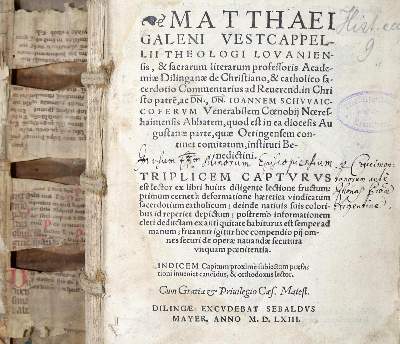 MATTHAEI
GALENI VESTCAPPEL-
LII THEOLOGI LOVANIEN-
sis, & sacrarum literarum professoris Acade-
miæ Dilinganæ de Christiano, & catholico sa-
cerdotio Commentarius ad Reuerend. in Chri
sto patrē, ac DN., DN. IOANNEM SCHVVAIC-
COFERVM Venerabilem Cœnobij Neres-
haimensis Abbatem, quod est in ea diocesis Au
gustanæ parte, quæ Oetingensem con-
tinet comitatum, instituti Be-
nedictini.
TRIPLICEM CAPTVRVS
est lector ex libri huius diligente lectione fructum:
primum cernet à deformatione hæretica vindicatum
sacerdotium catholicum; deinde natiuis suis colori-
bus id reperiet depictum; postremò informationem
cleri dedictam ex antiquitate habiturus est semper ad
manum; fruantur igitur hoc compendio pij om
nes securi de opera nauanda secutura
vsquam pœnitentia.
INDICEM Capitum proximè subiectum præfa-
tioni inuenit candidus, & orthodoxus lector.
Cum Gratia & Priuilegio Cæs. Maiest.
DILINGÆ EXCVDEBAT SEBALDVS
MAYER, ANNO M. D. LXIII.
9